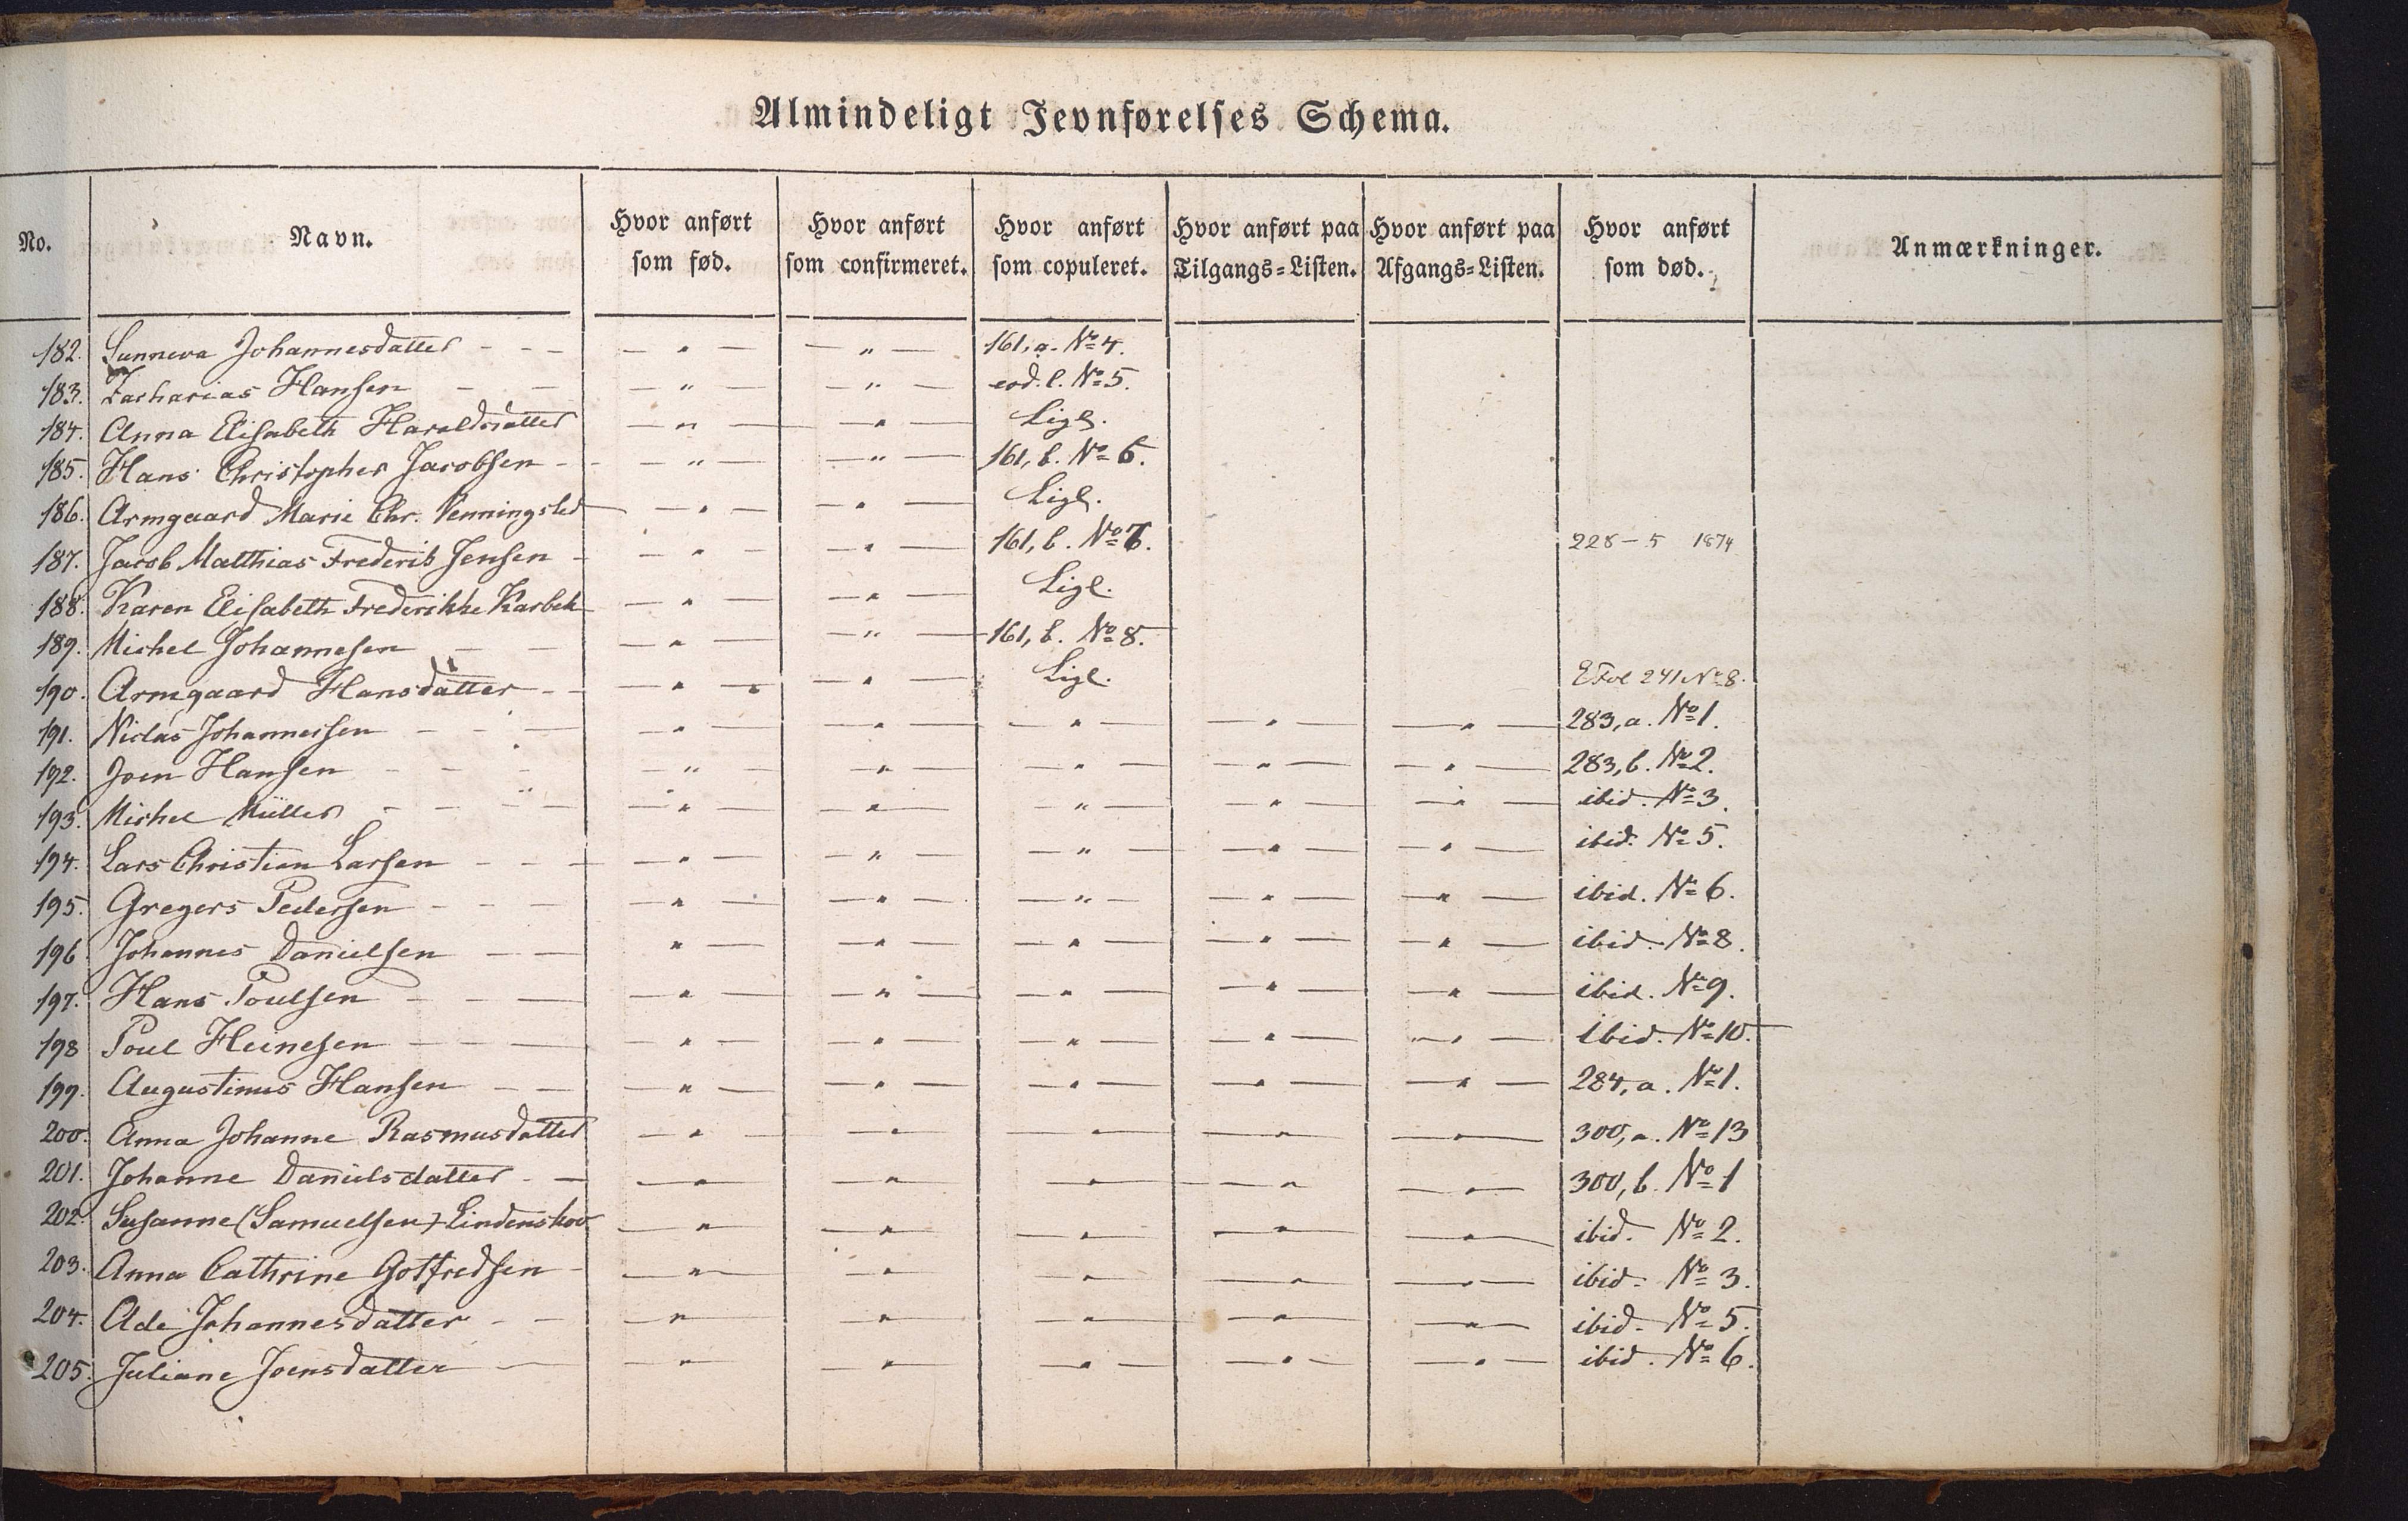 Almindeligt Jevnførelses Schema.
No. Navn. Hvor anført som fød. Hvor anført som confirmeret. Hvor anført som copuleret. Hvor anført paa Tilgangs=Listen. Hvor anført paa Afgangs=Listen. Hvor anført som død. Anmærkninger.
182. Sunneva Johannesdatter - - - — " — — " — 161, a. No 4.
183. Zacharias Hansen — — — " — — " — eod. l. No 5.
184. Anna Elisabeth Haraldsdatter — " — — " — Ligl.
185. Hans Christopher Jacobsen - - — " — — " — 161, b. No 6.
186. Armgaard Marie Chr. Venningsted — " — — " — Ligl.
187. Jacob Matthias Frederik Jensen - — " — — " — 161, b. No 7. 228 — 5 1874
188. Karen Elisabeth Frederikke Karbek — " — — " — Ligl.
189. Michel Johannesen — — — " — — " — 161, b. No 8.
190. Armgaard Hansdatter - - — " — — " — Ligl. E Fol 241 No 8.
191. Niclas Johannessen - - — — " — — " — — " — — " — — " — 283, a. No 1.
192. Joen Hansen - - - — " — — " — — " — — " — — " — 283, b. No 2.
193. Michel Müller - - - — — " — — " — — " — — " — — " — ibid. No 3.
194. Lars Christian Larsen - - — — " — — " — — " — — " — — " — ibid. No 5.
195. Gregers Pedersen - - — — " — — " — — " — — " — — " — ibid. No 6.
196. Johannes Danielsen — — " — — " — — " — — " — — " — ibid. No 8.
197. Hans Poulsen - — — — " — — " — — " — — " — — " — ibid. No 9.
198 Poul Heinesen - — — — " — — " — — " — — " — — " — ibid. No 10.
199. Augustinus Hansen — — — " — — " — — " — — " — — " — 284, a. No 1.
200. Anna Johanne Rasmusdatter — " — — " — — " — — " — — " — 300, a. No 13
201. Johanne Danielsdatter - — — " — — " — — " — — " — — " — 300, b. No 1
202. Susanne (Samuelsen) Lindenskov — " — — " — — " — — " — — " — ibid. No 2.
203. Anna Cathrine Gotfredsen - — " — — " — — " — — " — — " — ibid. No 3.
204. Ade Johannesdatter - — — " — — " — — " — — " — — " — ibid. No 5.
205. Juliane Joensdatter — — " — — " — — " — — " — — " — ibid. No 6.